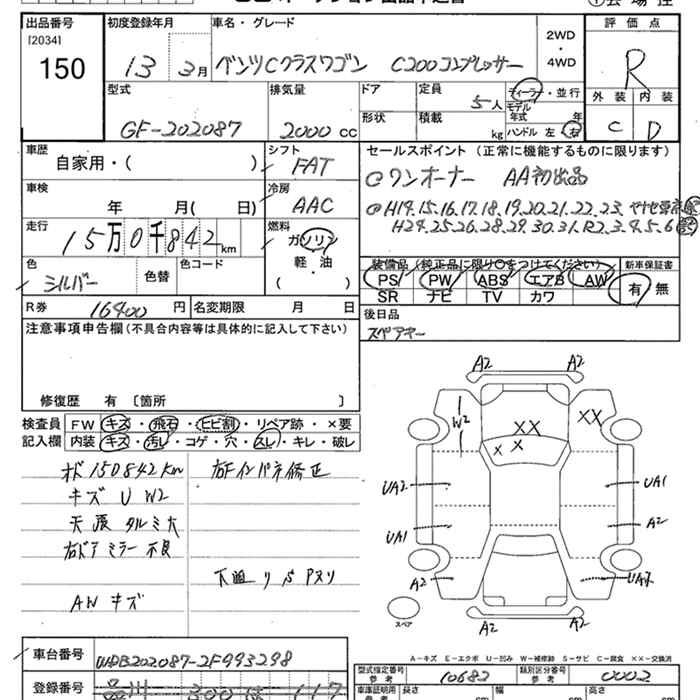 出品番号
[2034]
150
初度登録年月
13 3月
車名・グレード
ベンツCクラスワゴン C200コンプレッサー
2WD
・
4WD
評価点
R
外装 内装
C D
型式
GF-202087
排気量
2000 cc
ドア
定員
5人
ディーラー・並行
モデル
年式 年
形状
積載
kg
ハンドル 左 右
車歴
自家用・( )
シフト
FAT
セールスポイント (正常に機能するものに限ります)
@ワンオーナー AA初出品
車検
年 月( 日)
冷房
AAC
@H14.15.16.17.18.19.20.21.22.23.
H24.25.26.28.29.30.31.R2.3.4.5.6
走行
15万0千842km
燃料
ガソリン
軽・油
( )
色
シルバー
色替
色コード
装備品 (純正品に限り○をつけてください)
新車保証書
PS PW ABS エアB AW
SR ナビ TV カワ
有 無
R券 16400円
名変期限 月 日
後日品
スペアキー
注意事項申告欄 (不具合内容等は具体的に記入して下さい)
修復歴 有 〔箇所 〕
検査員
記入欄
FW キズ・飛石・ヒビ割・リペア跡・×要
内装 キズ・汚レ・コゲ・穴・スレ・キレ・破レ
オド150842km
右Fインパネ修正
キズ U W2
天張 タルミ大
右ドアミラー不良
下廻リ
AW キズ
A2 A2
W2
XX
XX
X X
UA2
UA1
UA1
A2
A2
A2 A2
スペア
A-キズ E-エクボ U-凹み W-補修跡 S-サビ C-腐食 ××-交換済
車台番号
WDB202087-2F993298
登録番号
型式指定番号
参考
10682
類別区分番号
参考
0002
車庫証明用
参考
長さ
cm
幅
cm
高さ
cm